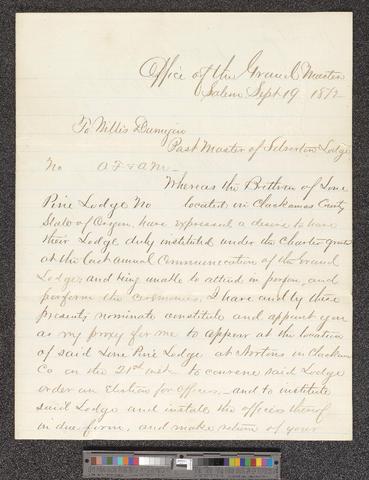 Office of the Grand Master
Salem Sept 19 1872
To Willis Dunigan
Past Master of Silverton Lodge
No A F & A M -
Whereas the Brethren of Lone
Pine Lodge No located in Clackamas County
State of Oregon, have expressed a desire to have
their Lodge duly instituted under the Charter granted
at the last annual Communication of the Grand
Lodge, and being unable to attend in person, and
perform the ceremonies, I have and by these
presents, nominate constitute and appoint you
as my proxy for me to appear at the location
of said Lone Pine Lodge at Nortons in Clackamas
Co on the 21st inst to convene said Lodge
order an Election for Officers, and to institute
said Lodge and install the officers thereof
in due form, and make return of your